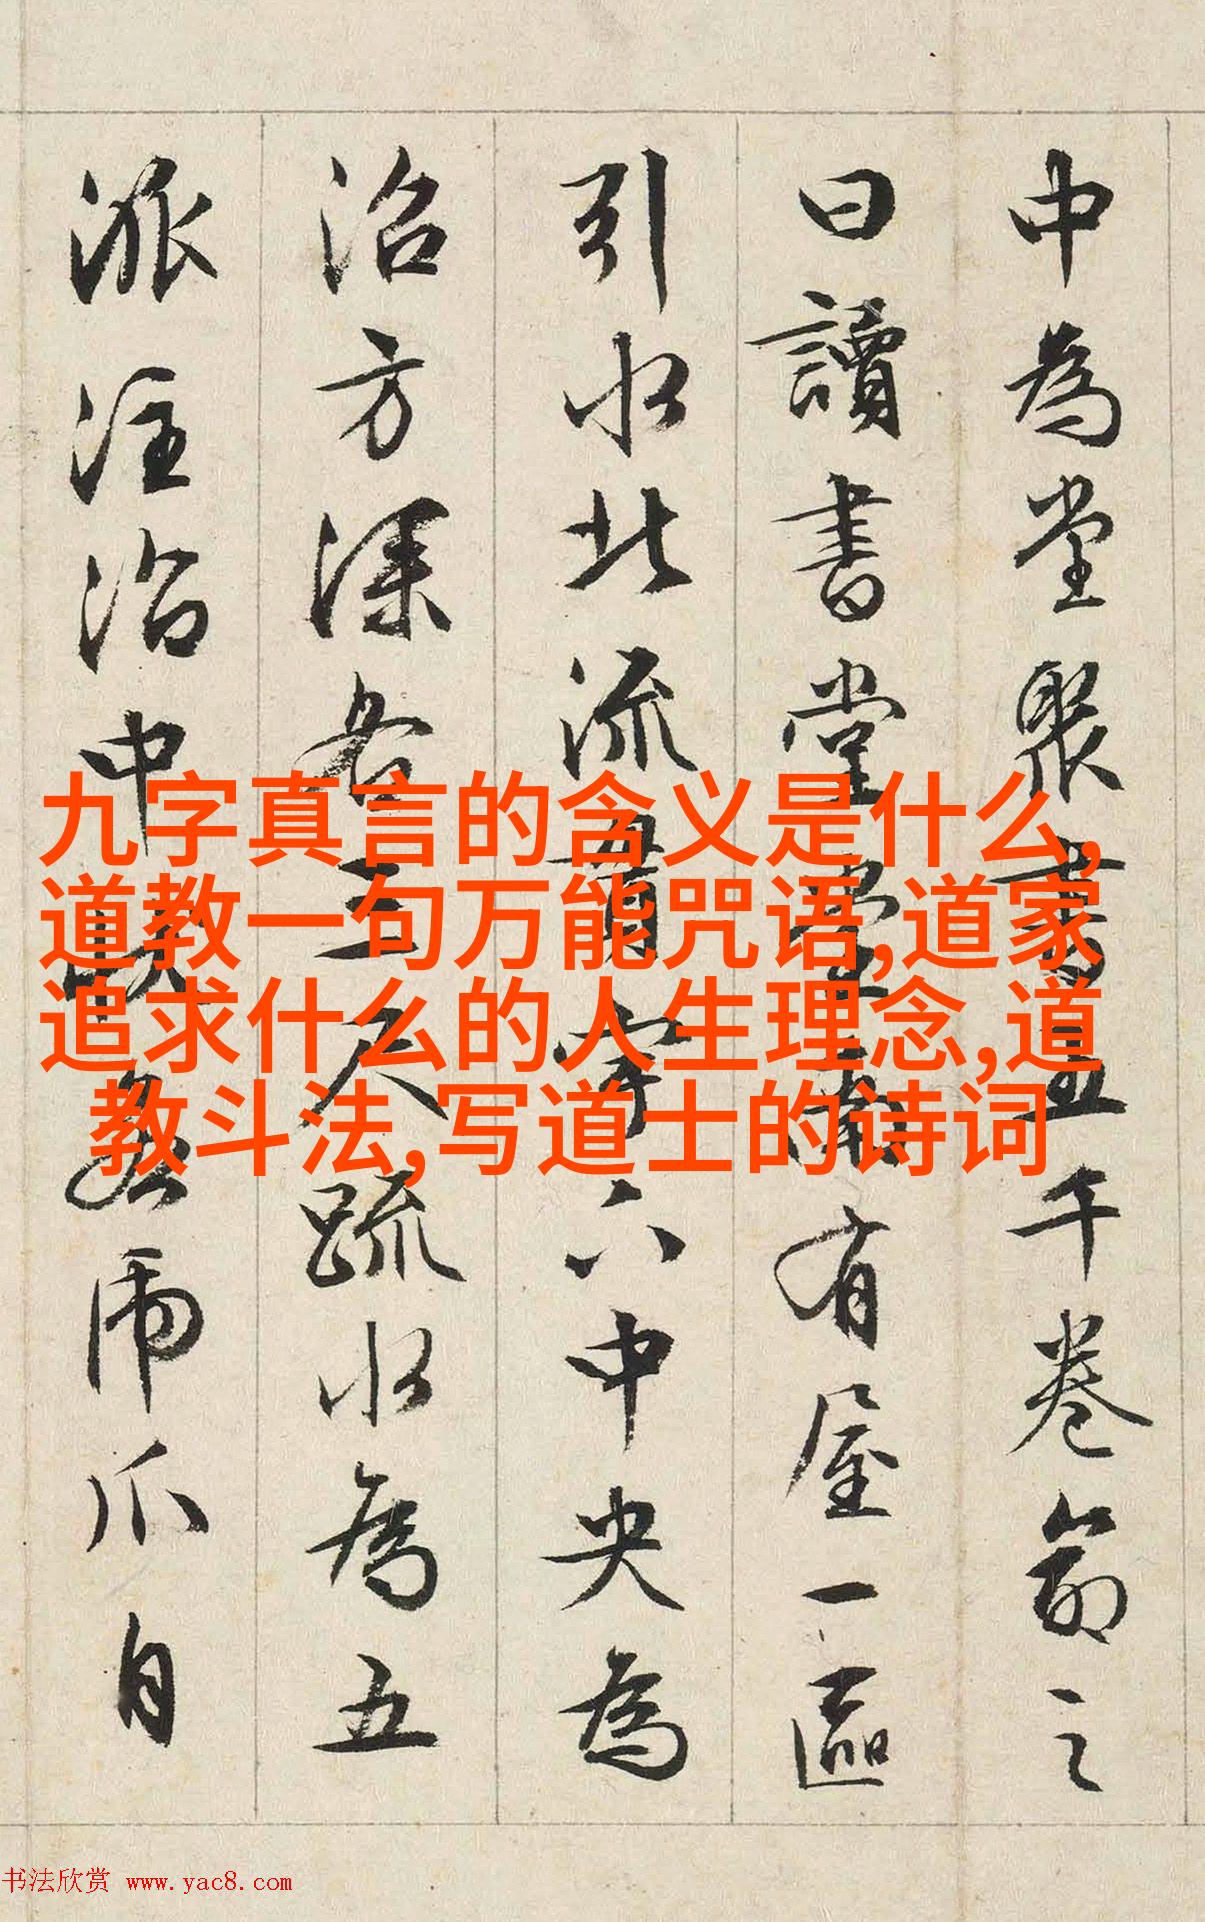 中為堂聚書五千卷命之
曰讀書堂堂南有屋一區
引水北流貫宇下中央為
沼方深各三尺疏水為五
派注沼中狀若虎爪自
九字真言的含义是什么,
道教一句万能咒语,道家
追求什么的人生理念,道
教斗法,写道士的诗词
书法欣赏 www.yac8.com